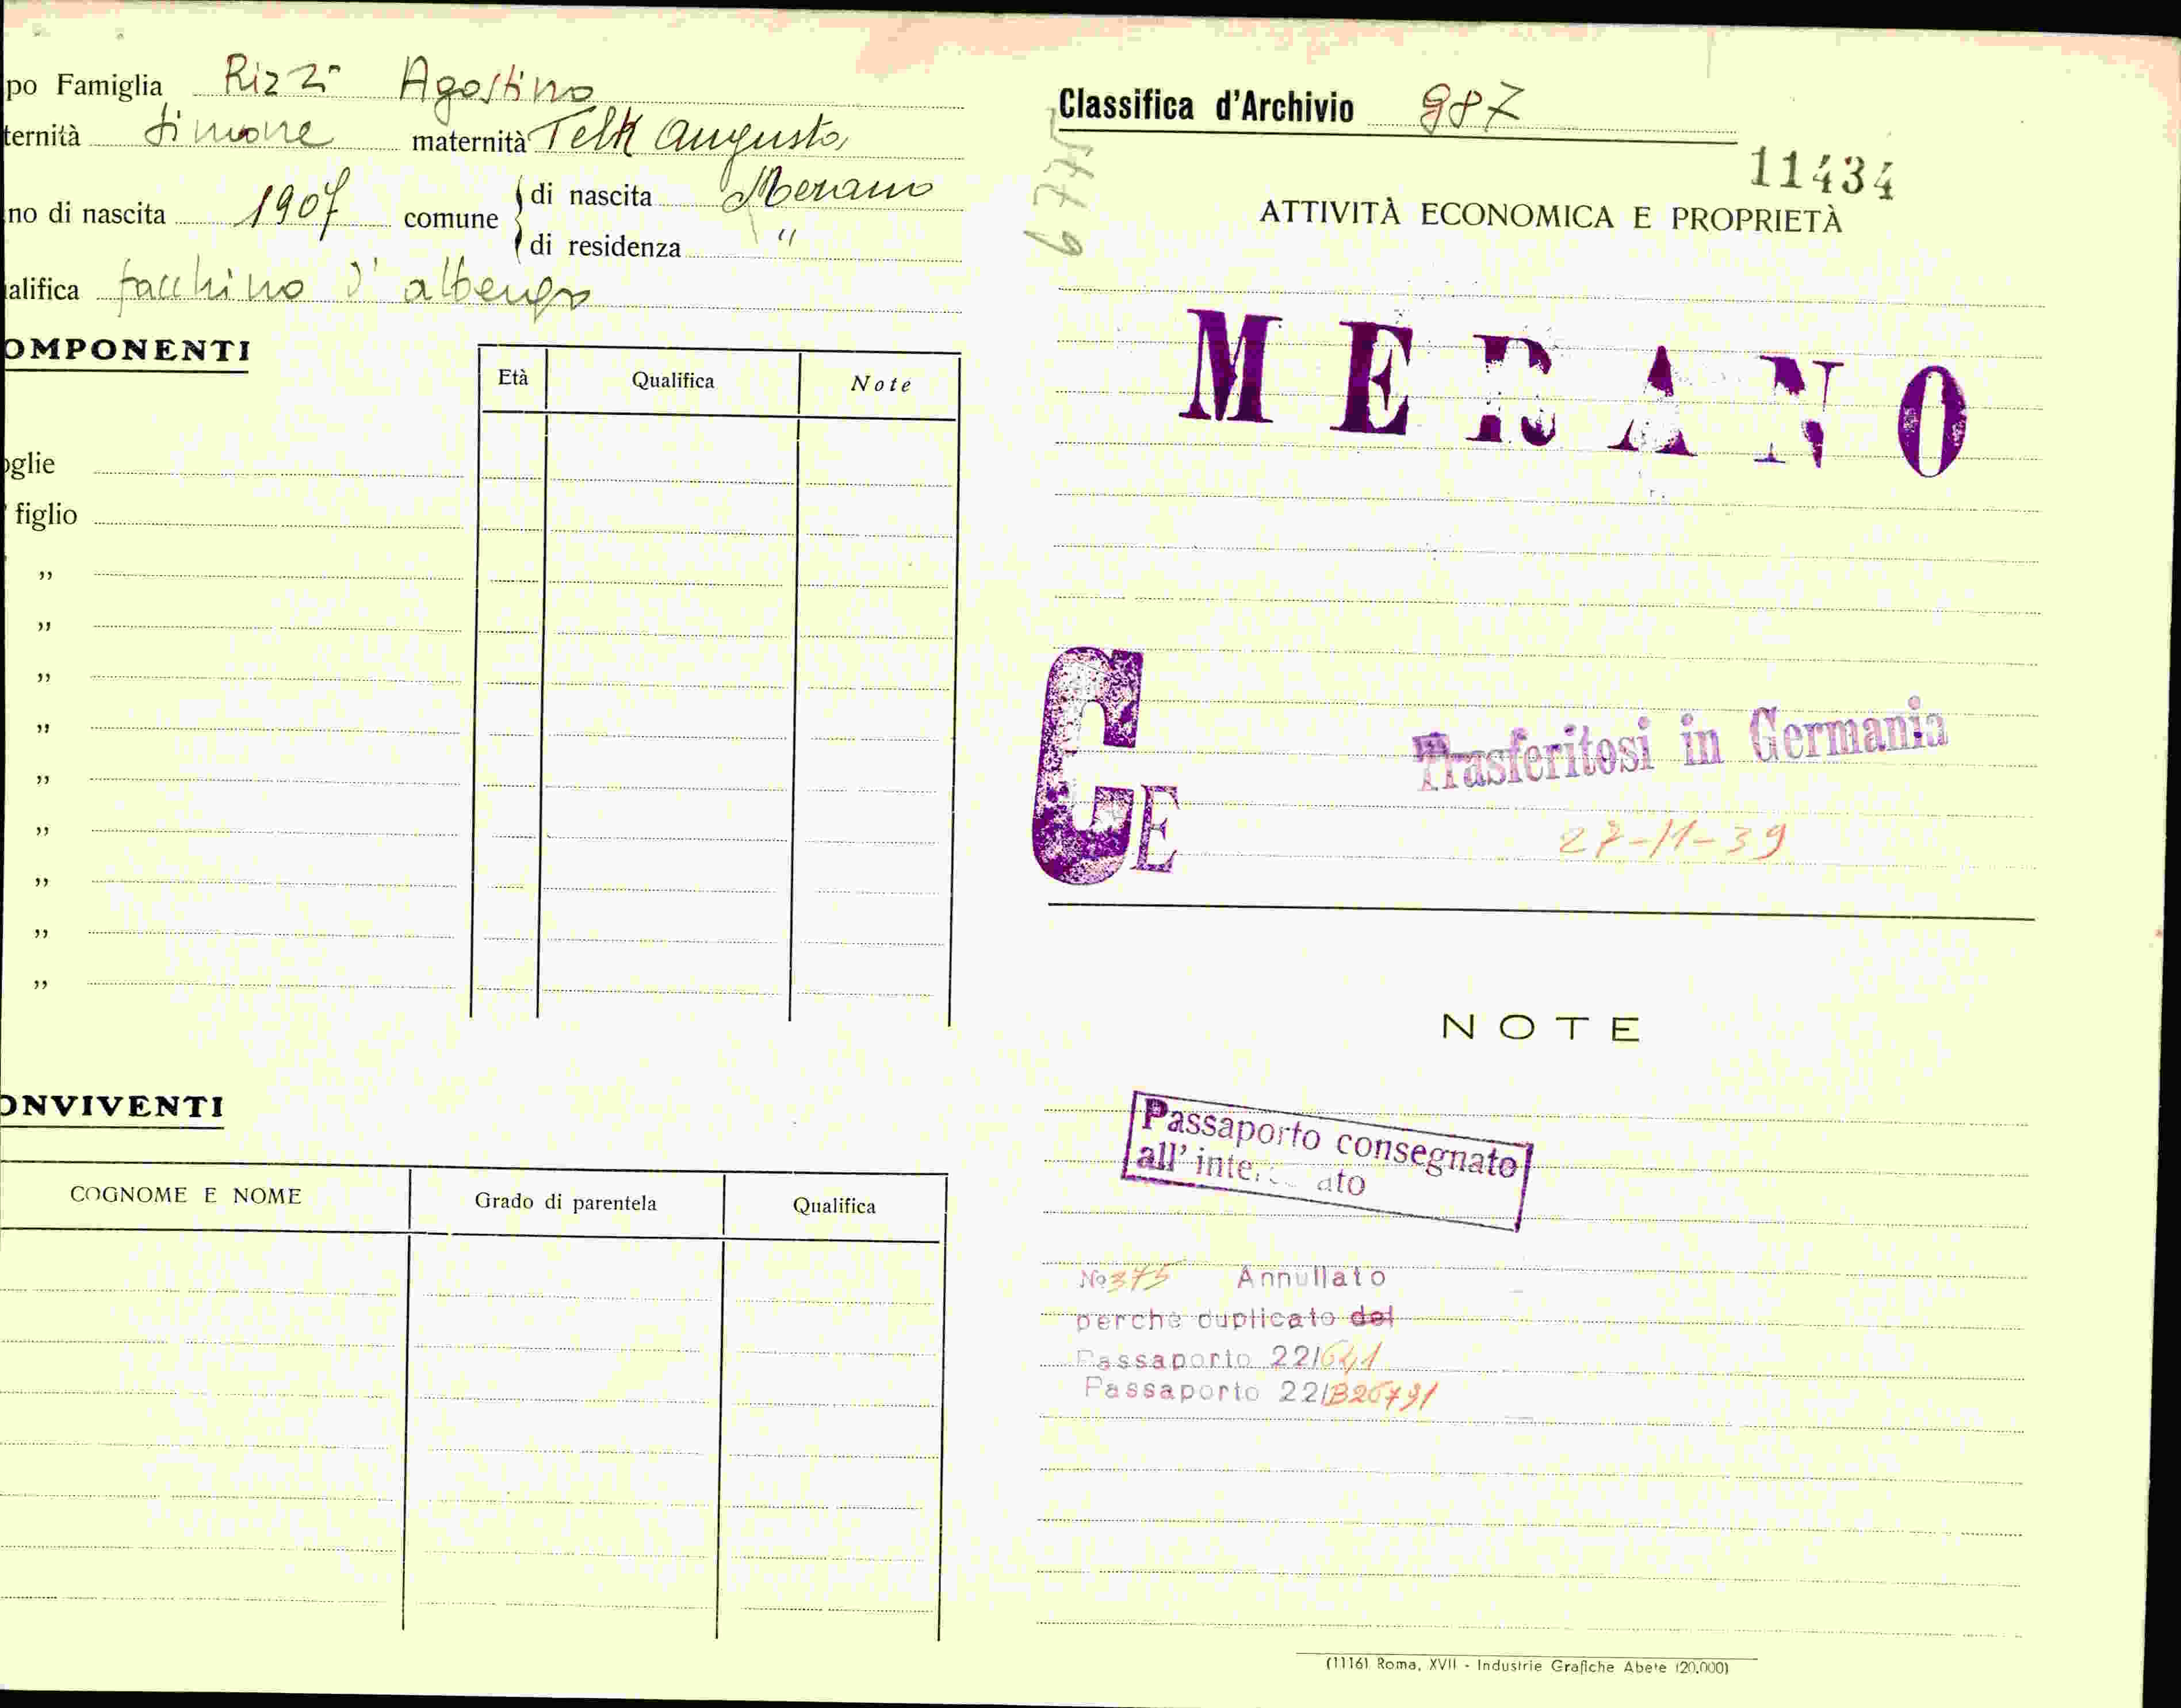 po Famiglia Rizzi Agostino
ternità Simone maternità Telk Augusta
no di nascita 1907 comune di nascita Merano
di residenza "
alifica facchino d'albergo
OMPONENTI
Età Qualifica Note
oglie
figlio
"
"
"
"
"
"
"
"
"
ONVIVENTI
COGNOME E NOME Grado di parentela Qualifica
Classifica d'Archivio 987
11434
ATTIVITÀ ECONOMICA E PROPRIETÀ
MERANO
Trasferitosi in Germania
CE
27-11-39
NOTE
Passaporto consegnato
all'interessato
No 375 Annullato
perchè duplicato del
Passaporto 221641
Passaporto 221B26791
(1116) Roma, XVII - Industrie Grafiche Abete (20.000)